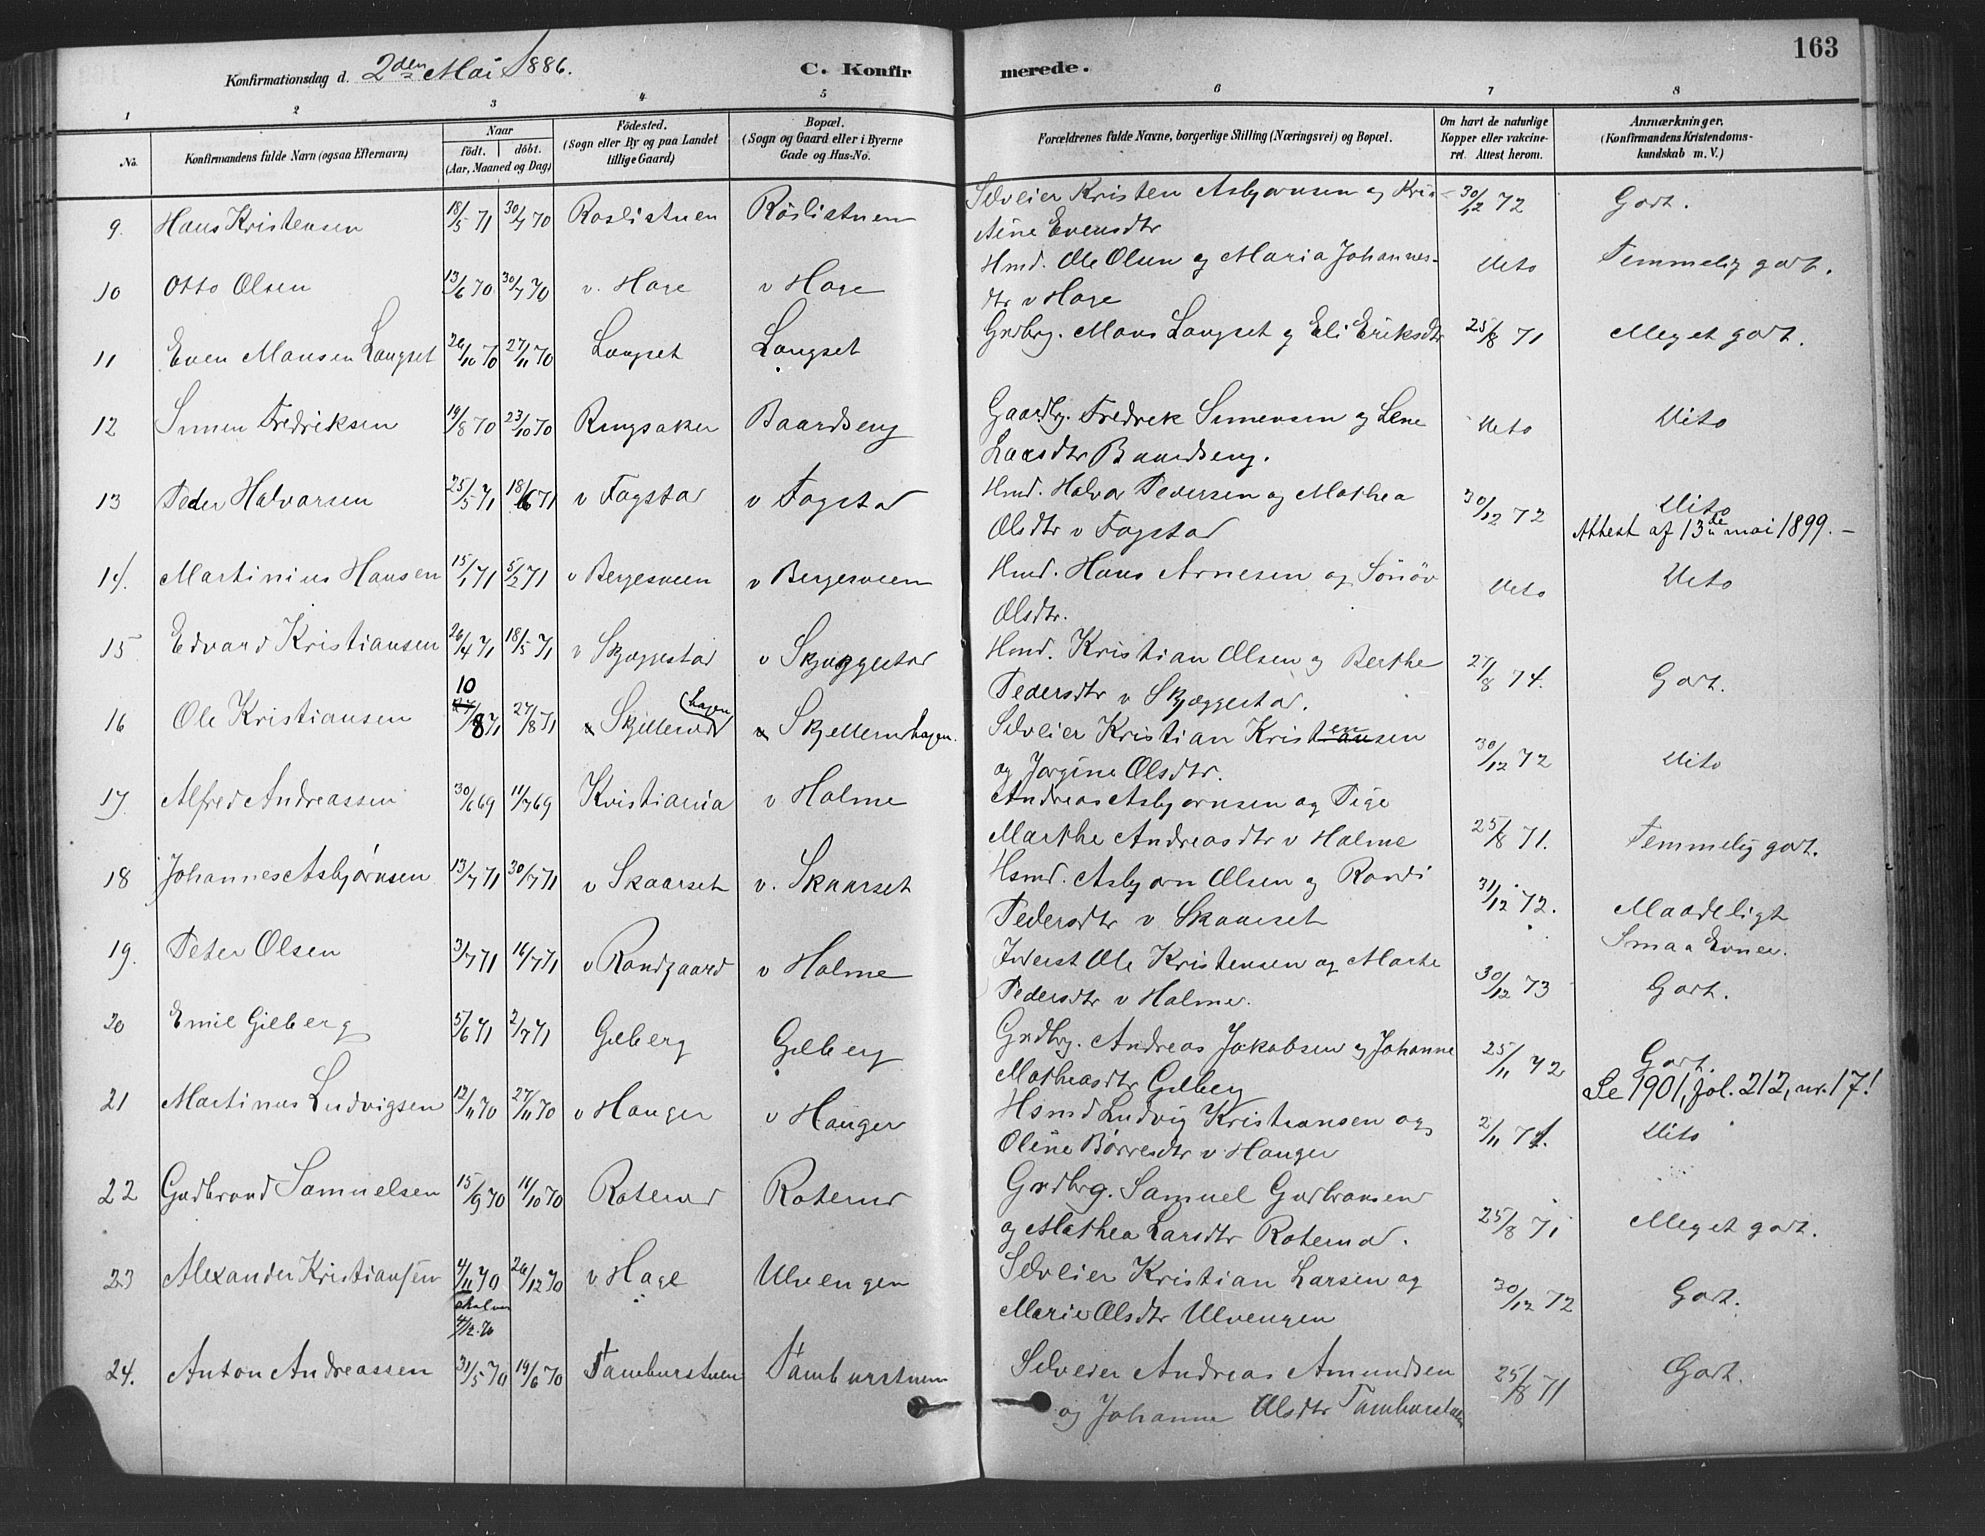 163
Konfirmationsdag d. 2den Mai 1886. C. Konfirmerede.
1 2 3 4 5 6 7 8
No. Konfirmandens fulde Navn (ogsaa Efternavn) Naar födt. döbt. (Aar, Maaned og Dag) Födested. (Sogn eller By og paa Landet tillige Gaard) Bopæl. (Sogn og Gaard eller i Byerne Gade og Hus-No. Forældrenes fulde Navne, borgerlige Stilling (Næringsvei) og Bopæl. Om havt de naturlige Kopper eller vakcineret. Attest herom. Anmærkninger. (Konfirmandens Kristendomskundskab m. V.)
9. Hans Kristensen 18/5 71 30/7 70 Roslistuen Röslistuen Selveier Kristen Asbjørnsen og Kris- 30/12 72 Godt.
tine Evensdtr
10 Otto Olsen 13/6 70 30/7 70 v. Hage v Hage Hmd. Ole Olsen og Maria Johannes- Dito Temmelig godt.
dtr v Hage
11 Even Mansen Langset 26/10 70 27/11 70 Langset Langset Grdbrg. Mans Langset og Eli Eriksdtr 25/8 71 Meget godt.
12 Simen Fredriksen 19/8 70 23/10 70 Ringsaker Baardseng Gaardbg. Fredrik Simensen og Lene Dito Dito
Larsdtr Baardseng.
13 Peder Halvorsen 25/5 71 18/6 71 v Fagstad v Fagstad Hmd. Halvor Pedersen og Mathea 30/12 72 Dito
Olsdtr v Fagstad Attest af 13de mai 1899. -
14. Martinius Hansen 15/1 71 5/2 71 v Bergesveen v Bergesveen Hmd. Hans Arnesen og Sönöv Dito Dito
Olsdtr.
15 Edvard Kristiansen 26/4 71 18/5 71 v Skjæggestad v Skjæggestad Hmd. Kristian Olsen og Berthe 27/8 74. Godt.
Pedersdtr v Skjæggestad.
16 Ole Kristiansen 10/8 71 27/8 71 v Skjellerud (hagen v Skjellerudhagen. Selveier Kristian Kristensen 30/12 72 Dito
og Jørgine Olsdtr.
17 Alfred Andreassen 30/6 69 11/7 69 Kristiania v Holme Andreas Asbjørnsen og Pige
Marthe Andreasdtr v Holme 25/8 71. Temmelig godt.
18 Johannes Asbjørnsen 13/7 71 30/7 71 v Skaarset v. Skaarset Hsmd. Asbjørn Olsen og Randi 31/12 72. Maadeligt
Pedersdtr v Skaarset Smaa Evner.
19. Peter Olsen 3/7 71 16/7 71 v Randgaard v Holme Inderst Ole Kristensen og Marte 30/12 73 Godt.
Pedersdtr v Holme.
20 Emil Gilberg 5/6 71 2/7 71 Gilberg Gilberg Grdbrg. Andreas Jakobsen og Johanne 25/11 72 Godt.
Matheasdtr Gilberg Se 1901, fol. 212, nr. 17!
21 Martinus Ludvigsen 12/11 70 27/11 70 v Hanger v Hanger Hsmd Ludvig Kristiansen og 2/11 71. Dito
Oline Børresdtr v Hanger
22 Gudbrand Samuelsen 15/9 70 16/10 70 Roterud Roterud Grdbrg. Samuel Gudbransen 25/8 71 Meget godt.
og Mathea Larsdtr Roterud.
23 Alexander Kristiansen 4/11 70 26/12 70 v Hage Ulvengen Selveier Kristian Larsen og 30/12 72 Godt.
skal være 4/12.70 Marie Olsdtr Ulvengen
24. Anton Andreassen 31/5 70 19/6 70 Tamburstuen Tamburstuen Selveier Andreas Amundsen 25/8 71 Godt.
og Johanne Olsdtr Tamburstuen